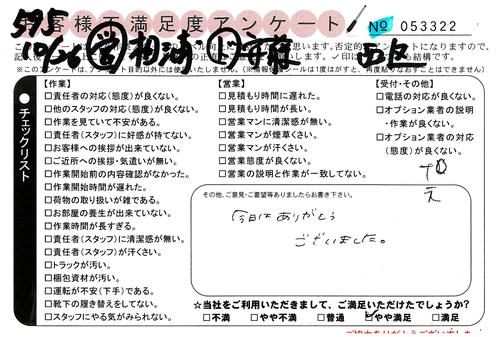 お客様不満足度アンケート
No 053322
595
10/26 営 相浦 ト 斉藤 西区
※このアンケートは、アンケート目的以外には使用いたしません。
チェックリスト
【作業】
□責任者の対応(態度)が良くない。
□他のスタッフの対応(態度)が良くない。
□作業を見ていて不安がある。
□責任者(スタッフ)に好感が持てない。
□お客様への挨拶が出来ていない。
□ご近所への挨拶・気遣いが無い。
□作業開始前の内容確認がなかった。
□作業開始時間が遅れた。
□荷物の取り扱いが雑である。
□お部屋の養生が出来ていない。
□作業時間が長すぎる。
□責任者(スタッフ)に清潔感が無い。
□責任者(スタッフ)が汗くさい。
□トラックが汚い。
□梱包資材が汚い。
□運転が不安(下手)である。
□靴下の履き替えをしてない。
□スタッフにやる気がみられない。
【営業】
□見積もり時間に遅れた。
□見積もり時間が長い。
□営業マンに清潔感が無い。
□営業マンが煙草くさい。
□営業マンが汗くさい。
□営業態度が良くない。
□営業の説明と作業が一致してない。
【受付・その他】
□電話の対応が良くない。
□オプション業者の説明
・作業が良くない。
□オプション業者の対応
(態度)が良くない。
その他、ご意見・ご要望等ありましたらお書き下さい。
今日は ありがとう
ございました。
☆当社をご利用いただきまして、ご満足いただけたでしょうか?
□不満 □やや不満 □普通 ☑やや満足 □満足
ご協力ありがとうございました